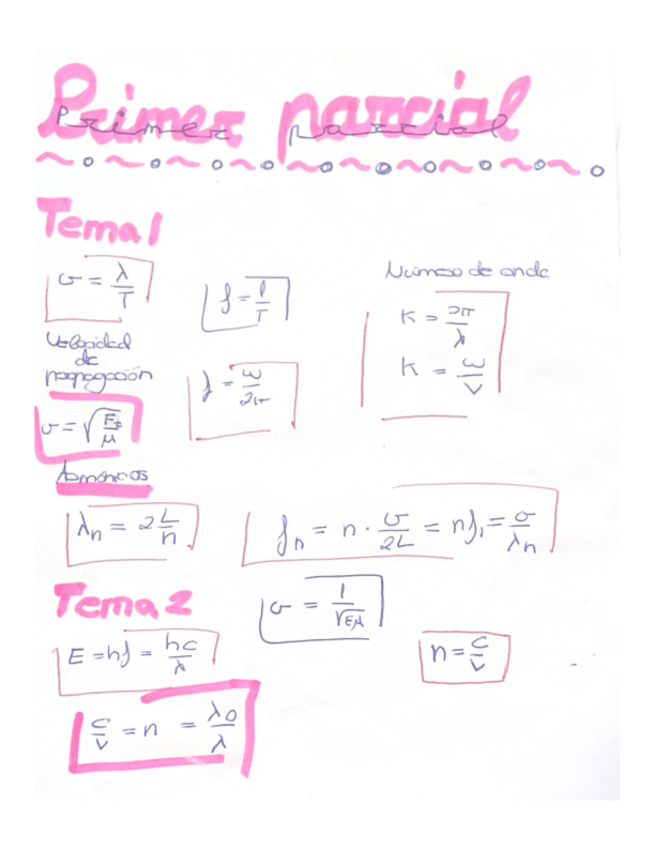 Primer parcial
Tema 1
v = λ/T
f = 1/T
Número de onda
K = 2π/λ
K = ω/v
Velocidad
de
propagación
f = ω/2π
v = √(F/μ)
Armónicos
λn = 2 L/n
fn = n · v/2L = nf₁ = v/λn
Tema 2
v = 1/√εμ
E = hf = hc/λ
n = c/v
c/v = n = λ0/λ